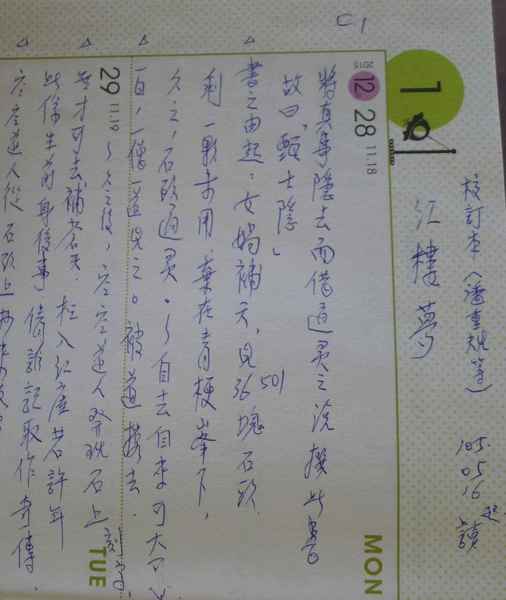 校訂本(潘重規等) 105.05.16起讀
紅樓夢
C1
2015
12 28 11.18 MON
將真事隱去而借通灵之說撰此書
故曰「甄士隱」
書之由起:女媧補天,見36501塊石頭
剩一顆未用,棄在青梗峯下,
久之,石頭通灵。自去自來可大可小
一日,一僧一道見之。被道携去.
29 11.19 TUE
空空道人發現石上
無才可去補蒼天 枉入紅塵若許年
此係生前身後事 倩誰記取作奇傳.
空空道人從石頭上抄來